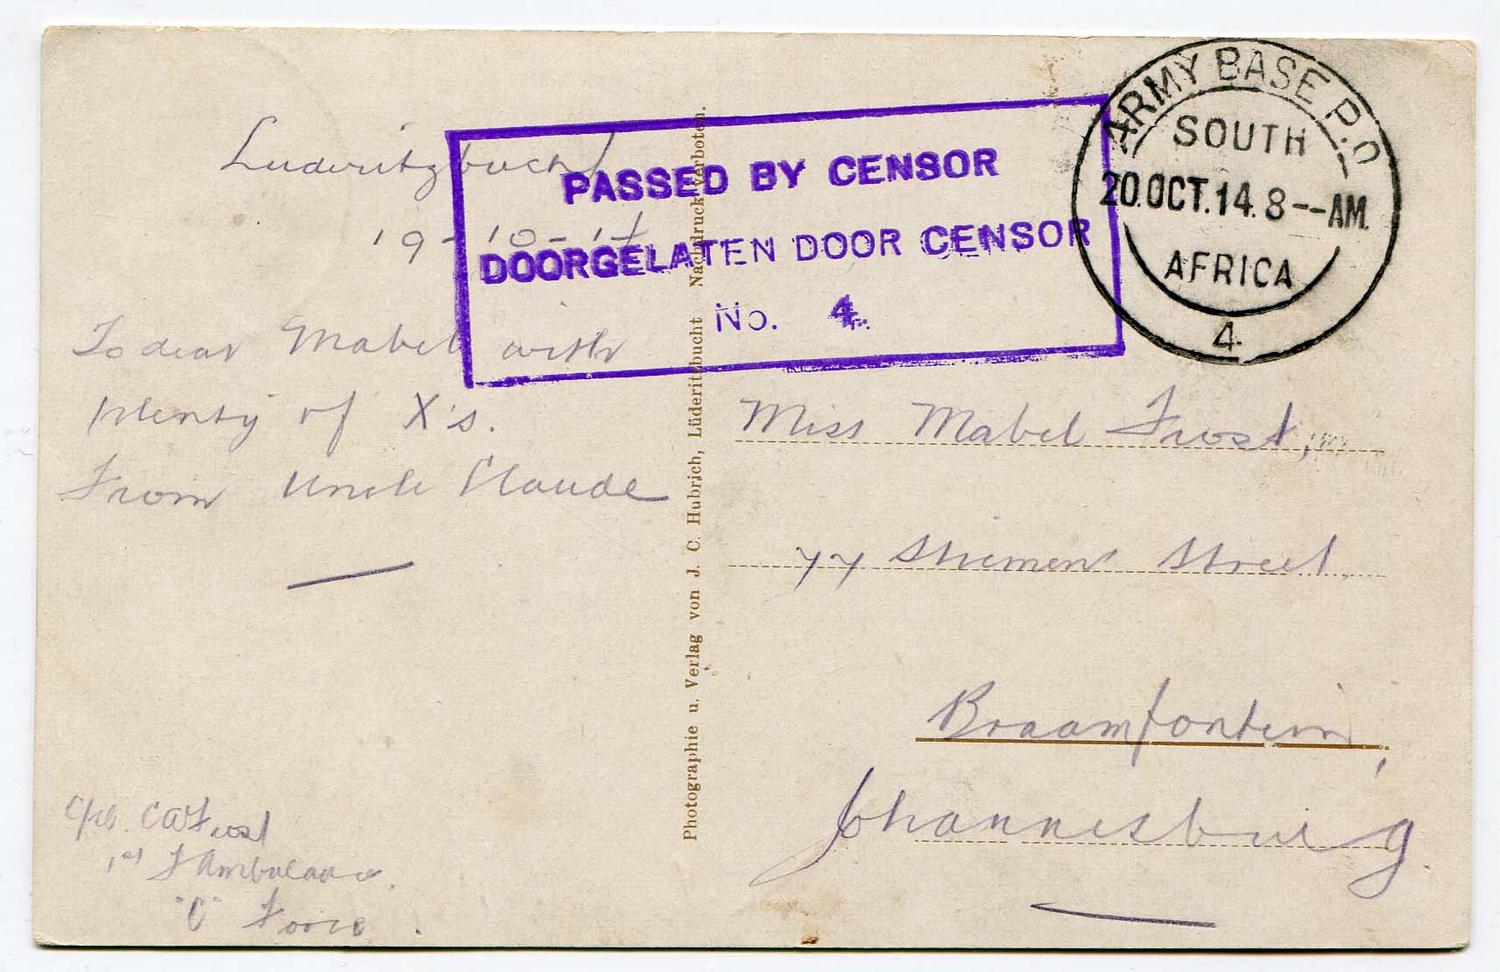 Luderitzbucht
19-10-14
To dear Mabel with
plenty of X's.
From Uncle Claude
Cpl. C A Frost
1st F Ambulance.
"C" Force.
Photographie u. Verlag von J. C. Hubrich, Lüderitzbucht Nachdruck verboten.
PASSED BY CENSOR
DOORGELATEN DOOR CENSOR
No. 4.
ARMY BASE P.O.
SOUTH
20.OCT.14.8--AM.
AFRICA
4.
Miss Mabel Frost,
77 Street
Braamfontein,
Johannesburg.